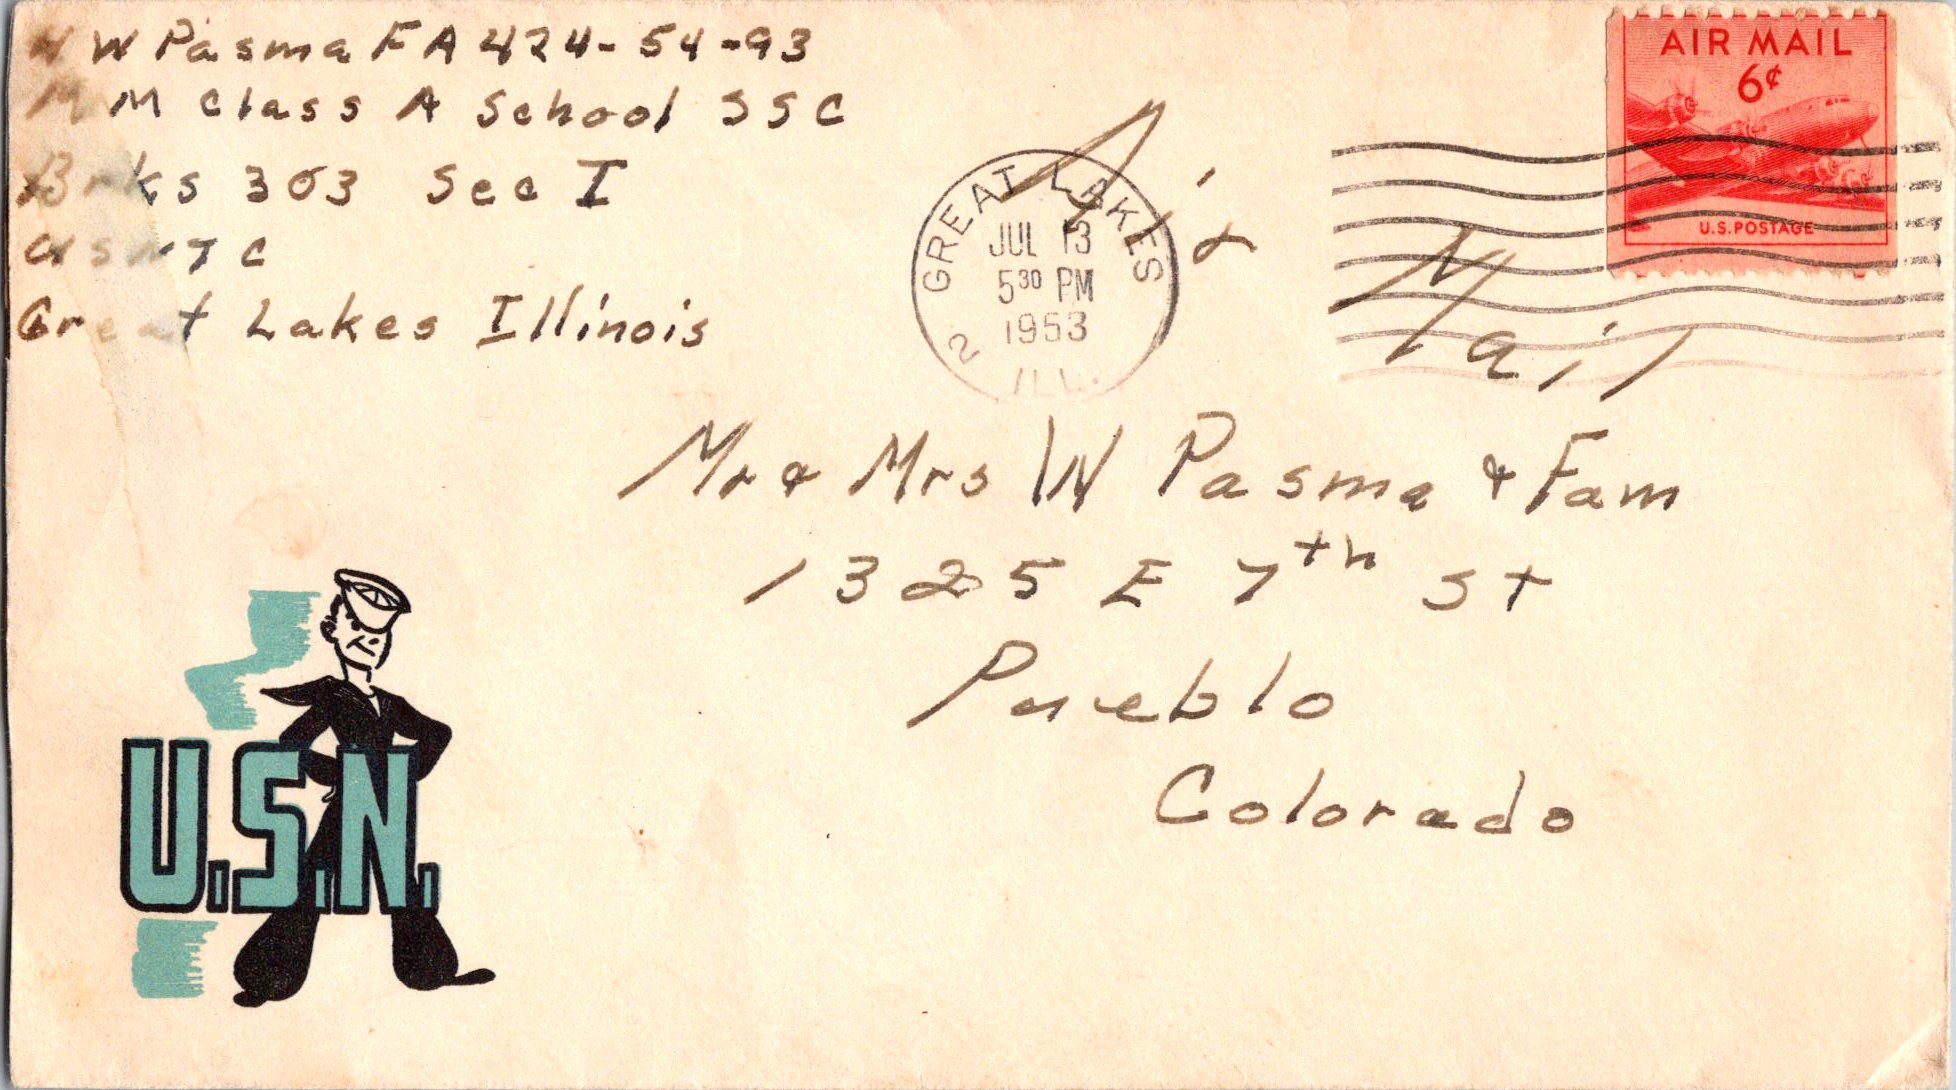 H W Pasma FA 424-54-93
MM Class A School SSC
Brks 303 Sec I
USNTC
Great Lakes Illinois
AIR MAIL
6¢
U.S. POSTAGE
GREAT LAKES
JUL 13
5 30 PM
1953
2
ILL.
Air Mail
Mr & Mrs W Pasma & Fam
1325 E 7th St
Pueblo
Colorado
U.S.N.